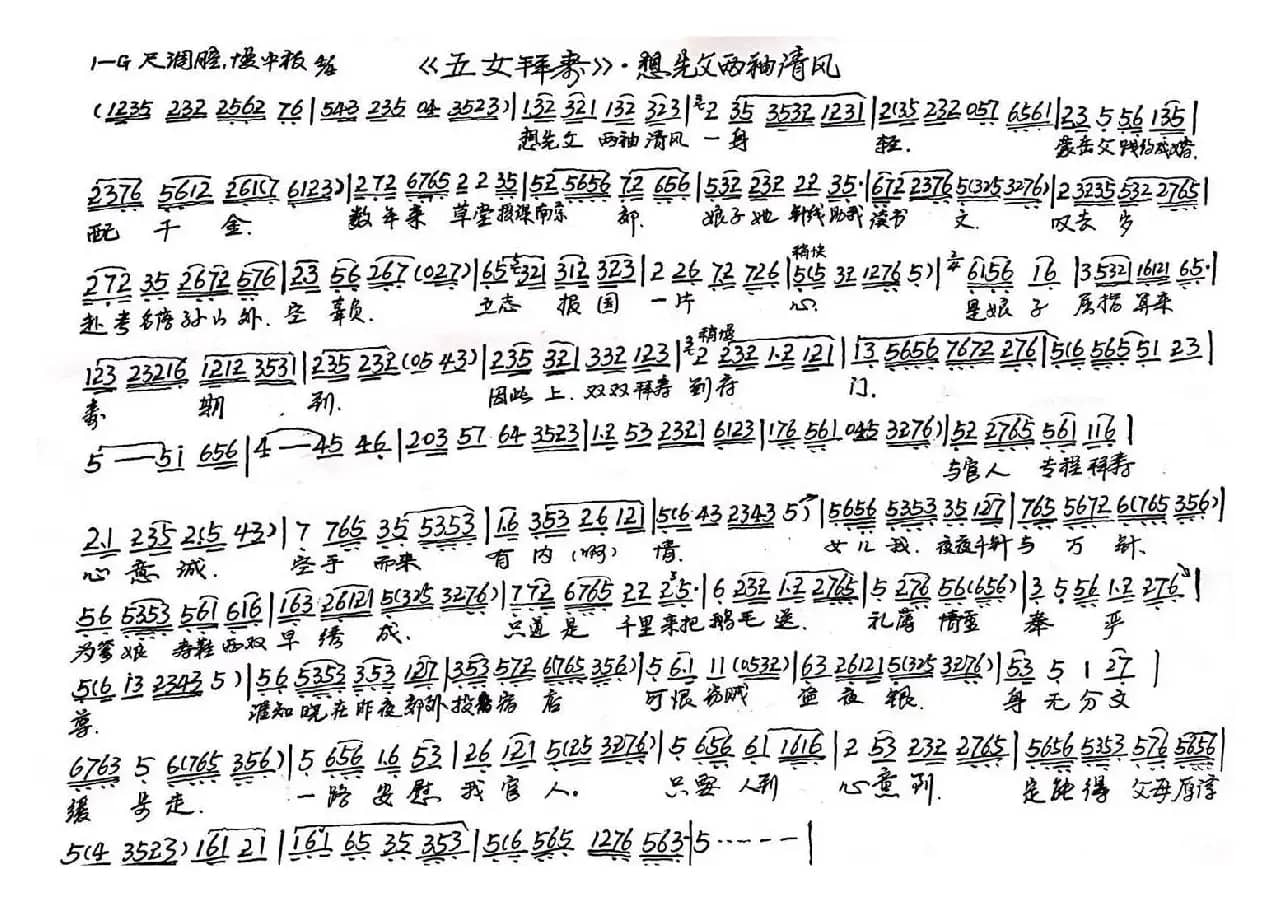 1=G 尺调腔.慢中板 《五女拜寿》·想先父两袖清风
(1235 232 2562 76 | 543 235 04 3523) | 1.32 321 132 323 | 2 35 3532 1231 | 2(35 232 057 6561 | 23 5 56 135 |
想先父 两袖清风 一身 轻. 蒙岳父践约成婚.
2376 5612 261(7 6123) | 272 6765 2 2 35 | 52 5656 72 656 | 532 232 22 35· | 672 2376 5(325 3276) | 2 3235 532 2765 |
配千金. 数年来 草堂攻读南京 郊. 娘子她 针线助我 读书 文. 叹去岁
272 35 2672 576 | 23 56 267 (027) | 65 321 312 323 | 2 26 72 726 | 稍快 5(5 32 1276 5) | 6156 16 | 3532 16121 65· |
赴考名序孙山外. 空辜负. 立志报国一片 心. 是娘子 屈指算来
123 23216 1212 3531 | 235 232 (05 43) | 235 321 332 123 | 稍慢 2 232 1·2 121 | 13 5656 7672 276 | 5(6 565 51 23 |
寿期.到. 因此上.双双拜寿 到府 门.
5 — 5i 656 | 4 — 45 46 | 203 57 64 3523 | 1·2 53 2321 6123 | 176 561 045 3276) | 52 2765 561 116 |
与官人 专程拜寿
2.1 235 2(5 43) | 7 765 35 5353 | 1.6 353 26 121 | 5(6 43 2343 5) | 5656 5353 35 127 | 765 5672 6(765 356) |
心意诚. 空手 而来 有内(啊)情. 女儿我.夜夜千针与 万 针.
56 5353 561 616 | 163 26121 5(325 3276) | 772 6765 22 25· | 6 232 1·2 2765 | 5 276 56(656) | 3 5 56 1·2 276 |
为爹娘 寿鞋两双 早绣成. 只道是 千里来把鹅毛送. 礼薄情重 奉 严
5(6 13 2343 5) | 56 5353 353 127 | 353 572 6765 356) | 5 6·1 11 (0532) | 63 26121 5(325 3276) | 53 5 1 27 |
尊. 谁知晓在昨夜 郊外投宿店 可恨窃贼 盗夜银. 身无分文
6763 5 6(765 356) | 5 656 1.6 53 | 26 121 5(25 3276) | 5 656 61 1616 | 2 53 232 2765 | 5656 5353 576 5656 |
缓步走. 一路安慰 我官人。 只要人到 心意到. 定能得 父母厚谆
5(4 3523) 161 21 | 161 65 35 353 | 5(6 565 1276 563· | 5 ······ — |